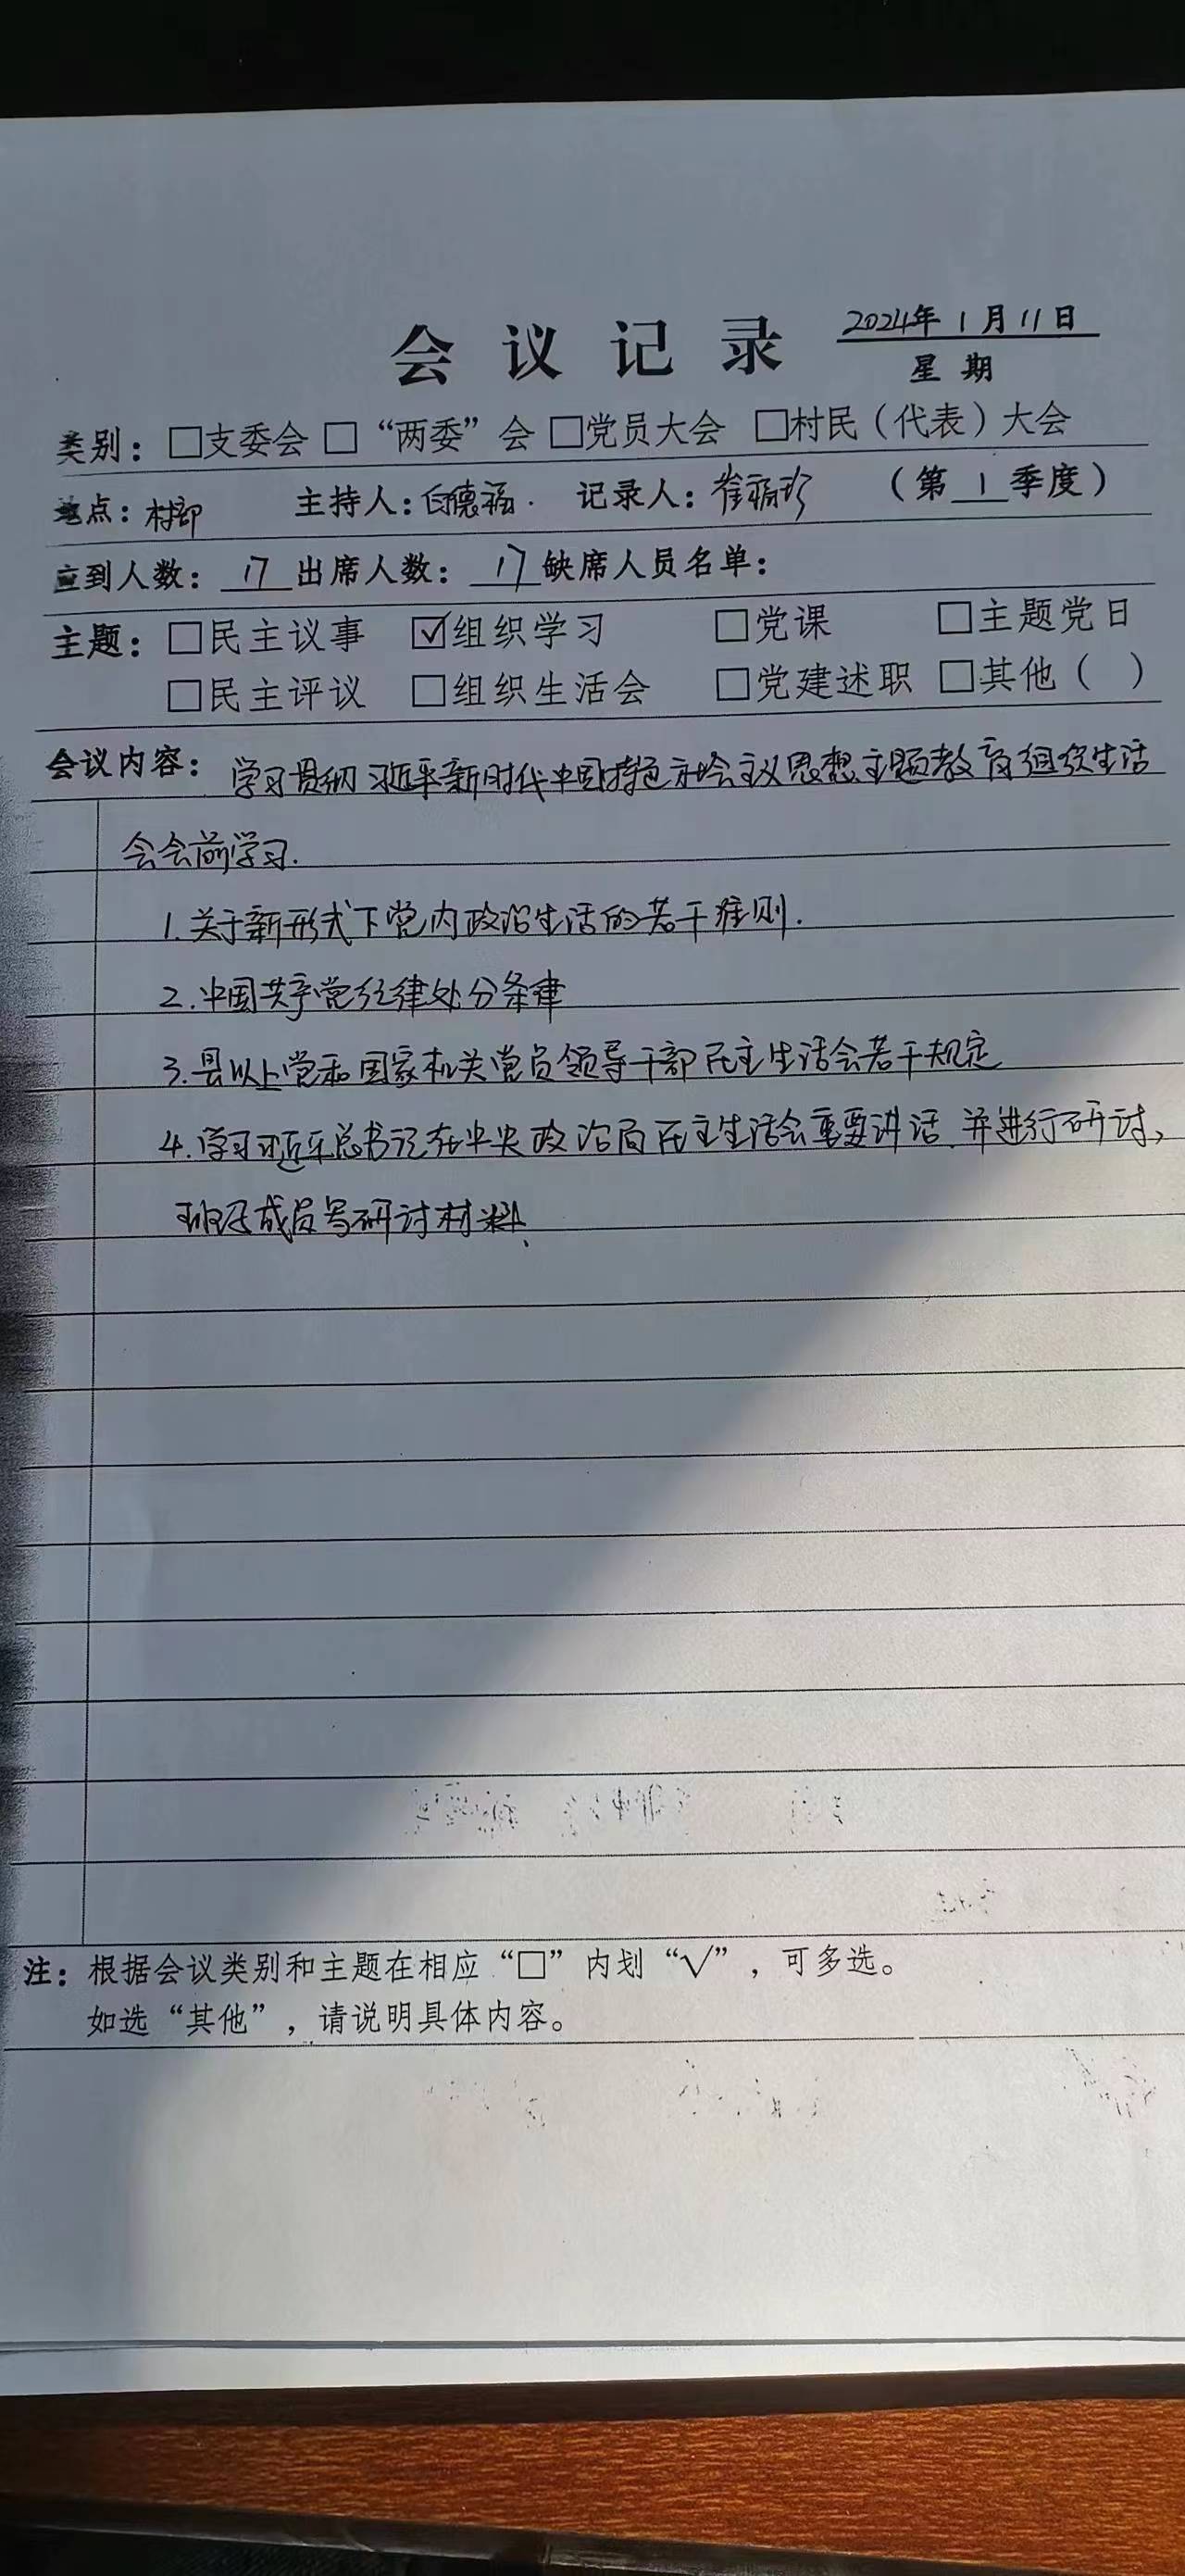 会议记录 2024年1月11日
星期
类别：□支委会 □“两委”会 □党员大会 □村民（代表）大会
地点：村部 主持人：白德福. 记录人：崔福珍 （第 1 季度）
应到人数：17 出席人数：17 缺席人员名单：
主题：□民主议事 ☑组织学习 □党课 □主题党日
□民主评议 □组织生活会 □党建述职 □其他（ ）
会议内容：学习贯彻习近平新时代中国特色社会主义思想主题教育组织生活
会会前学习.
1.关于新形式下党内政治生活的若干准则.
2.中国共产党纪律处分条律
3.县以上党和国家机关党员领导干部民主生活会若干规定
4.学习习近平总书记在中央政治局民主生活会重要讲话并进行研讨，
班子成员写研讨材料、
注：根据会议类别和主题在相应“□”内划“√”，可多选。
如选“其他”，请说明具体内容。